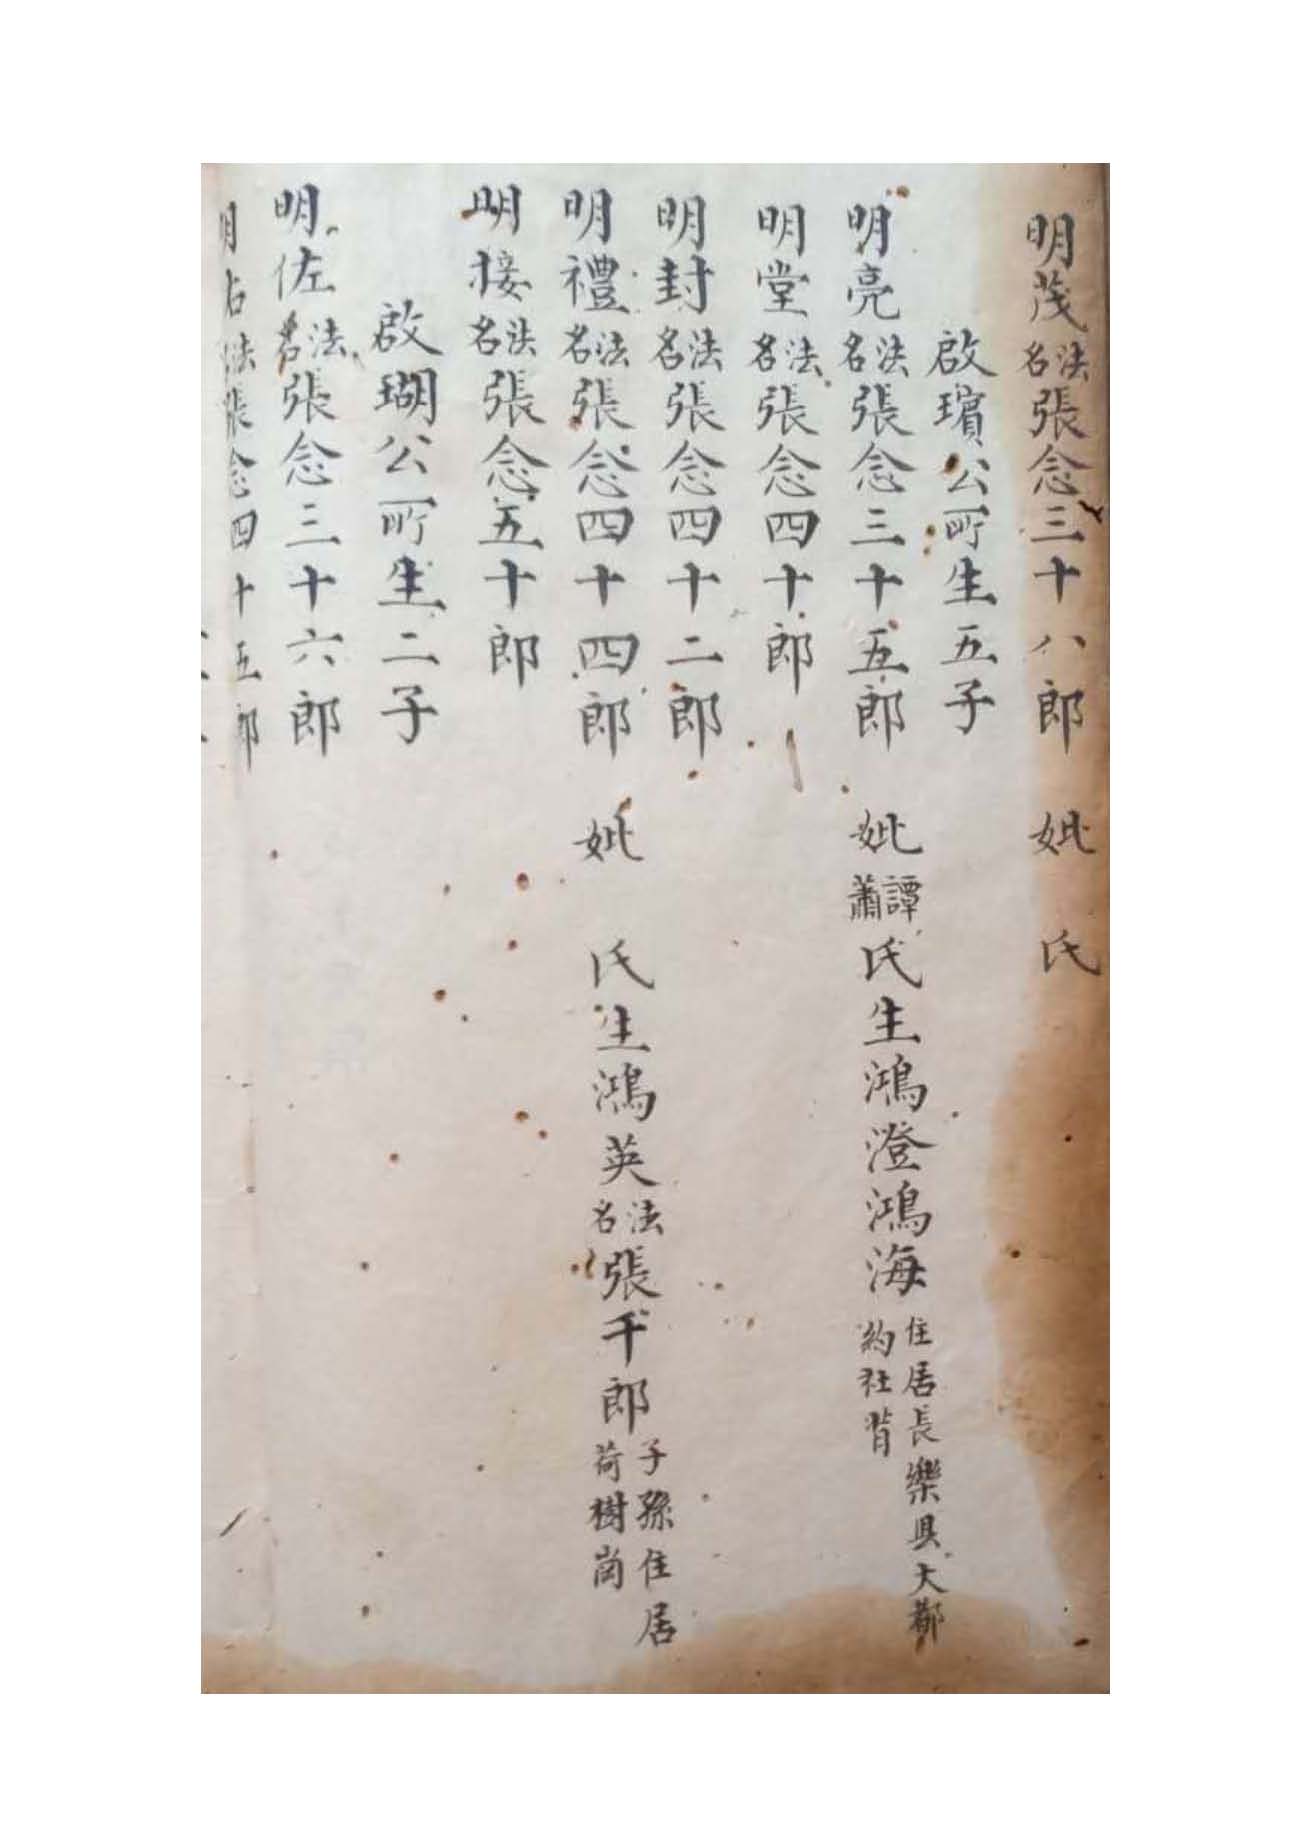 明茂法名張念三十八郎 妣 氏
啟璸公所生五子
明亮法名張念三十五郎 妣譚蕭氏生鴻澄鴻海住居長樂具大都約社背
明堂法名張念四十郎
明封法名張念四十二郎
明禮法名張念四十四郎 妣 氏生鴻英法名張千郎子孫住居荷樹崗
明接法名張念五十郎
啟瑚公所生二子
明佐法名張念三十六郎
明右法名張念四十五郎